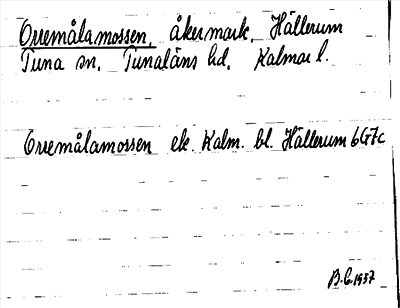 Orremålamossen, åkermark, Hällerum
Tuna sn. Tunaläns hd. Kalmar l.
Orremålamossen ek. Kalm. bl. Hällerum 6G7c
B.C. 1957